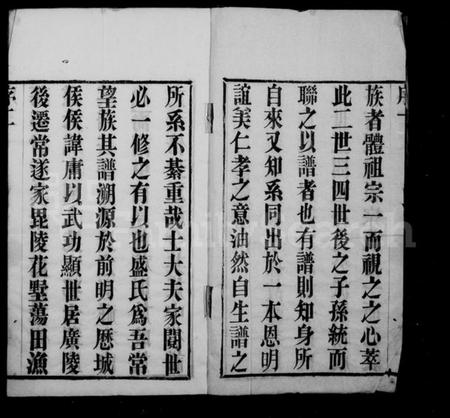 族者體祖宗一而視之之心萃
此二世三四世後之子孫統而
聯之以譜者也有譜則知身所
自來又知系同出於一本恩明
誼美仁孝之意油然自生譜之
所系不綦重哉士大夫家閱世
必一修之有以也盛氏爲吾常
望族其譜溯源於前明之歷城
侯侯諱庸以武功顯世居廣陵
後遷常遂家毘陵花墅蕩田漁